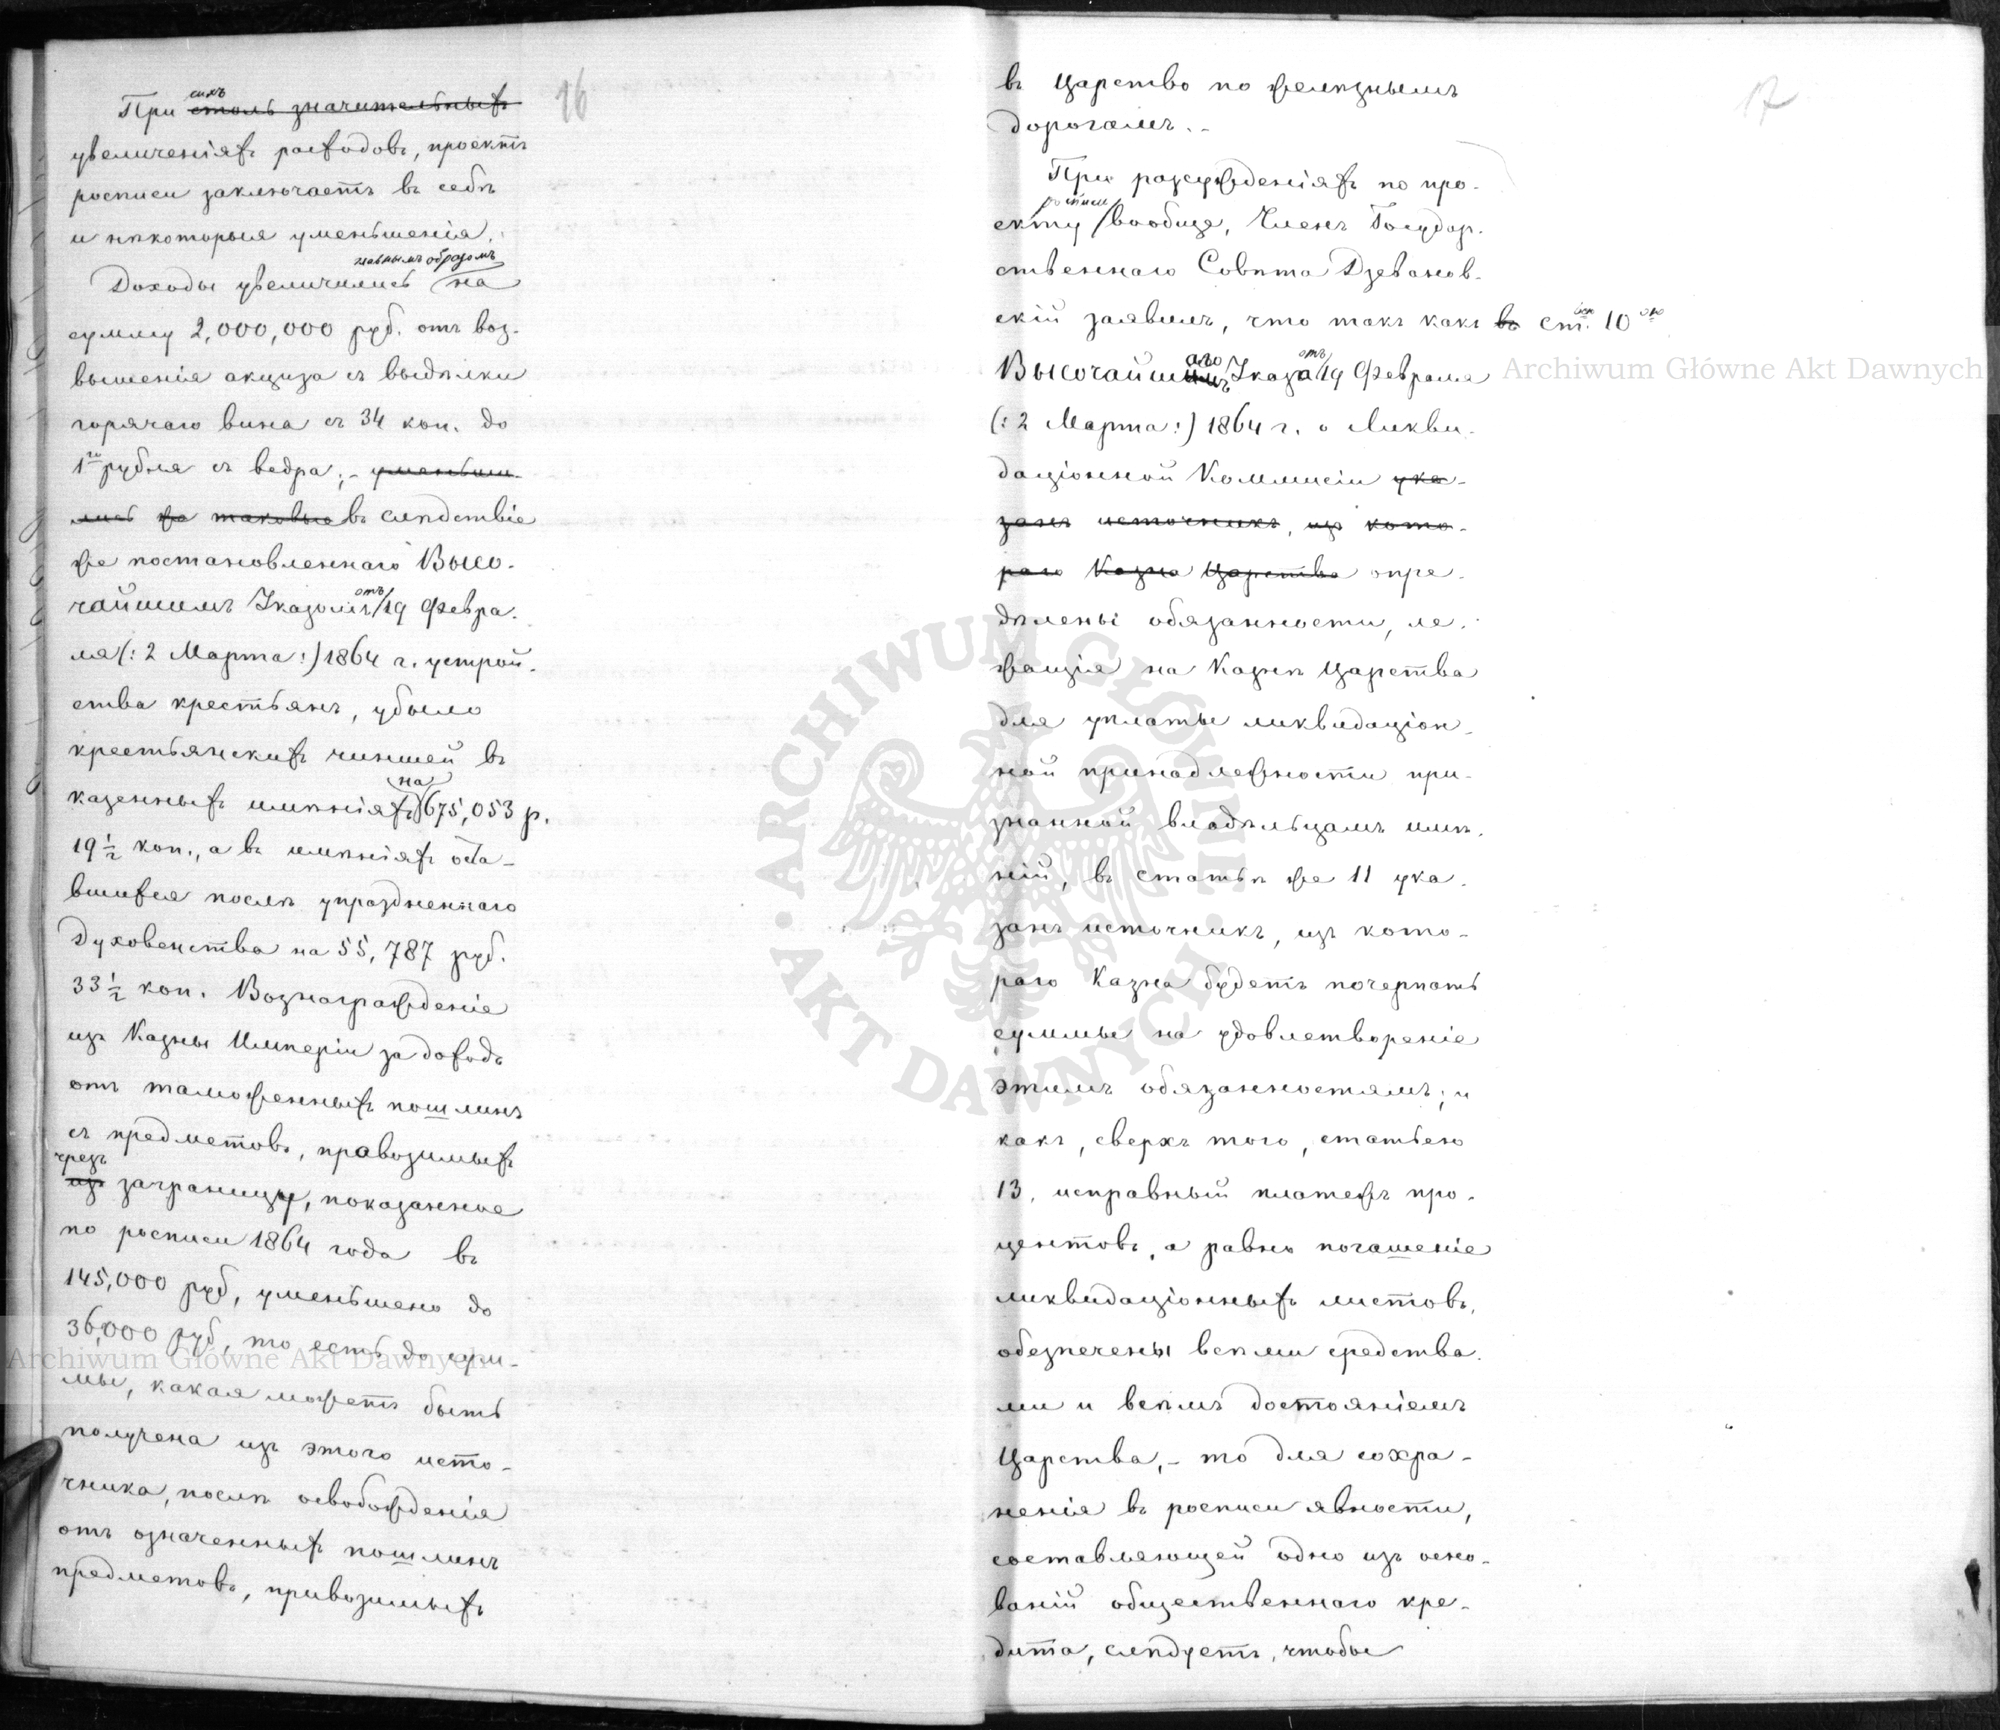 16
При ~~столь значительныхъ~~ сихъ
увеличеніяхъ расходовъ, проектъ
росписи заключаетъ въ себѣ
и нѣкоторыя уменьшенія.
главнымъ образомъ
Доходы увеличились на
сумму 2,000,000 руб. отъ воз-
вышенія акциза съ выдѣлки
горячаго вина съ 34 коп. до
1го рубля съ ведра; - ~~уменьши-~~
~~лись же таковые~~ въ слѣдствіе
же постановленнаго Высо-
чайшимъ Указомъ отъ 19 Февра-
ля (: 2 Марта :) 1864 г. устрой-
ства крестьянъ, убыло
крестьянскихъ чиншей въ
казенныхъ имѣніяхъ на 675,053 р.
19½ коп., а въ имѣніяхъ оста-
вшихся послѣ упраздненнаго
Духовенства на 55,787 руб.
33½ коп. Вознагражденіе
изъ Казны Имперіи за доходъ
отъ таможенныхъ пошлинъ
съ предметовъ, правозимыхъ
чрезъ
~~изъ~~ заграницу, показанное
по росписи 1864 года въ
145,000 руб, уменьшено до
36,000 руб, то есть до сум-
мы, какая можетъ быть
получена изъ этого исто-
чника, послѣ освобожденія
отъ означенныхъ пошлинъ
предметовъ, привозимыхъ
17
въ Царство по желѣзнымъ
дорогамъ. -
При разсужденіяхъ по про-
росписи
екту вообще, Членъ Государ-
ственнаго Совѣта Дзеванов-
скій заявилъ, что такъ какъ ~~въ~~ ст. 10ою
Высочайшаго Указа отъ 19 Февраля
(: 2 Марта :) 1864 г. о Ликви-
даціонной Коммисіи ~~ука-~~
~~занъ источникъ, изъ кото-~~
~~раго Казна Царства~~ опре-
дѣлены обязанности, ле-
жащія на Казнѣ Царства
для уплаты ликвидаціон-
ной принадлежности при-
знанной владѣльцамъ имѣ-
ній, въ статьѣ же 11 ука-
занъ источникъ, изъ кото-
раго Казна будетъ почерпать
суммы на удовлетвореніе
этимъ обязанностямъ; и
какъ, сверхъ того, статьею
13, исправный платежъ про-
центовъ, а равно погашеніе
ликвидаціонныхъ листовъ,
обезпечены всѣми средства-
ми и всѣмъ достояніемъ
Царства, - то для сохра-
ненія въ росписи явности,
составляющей одно изъ осно-
ваній общественнаго кре-
дита, слѣдуетъ, чтобы
Archiwum Główne Akt Dawnych
Archiwum Główne Akt Dawnych
ARCHIWUM GŁÓWNE · AKT DAWNYCH ·